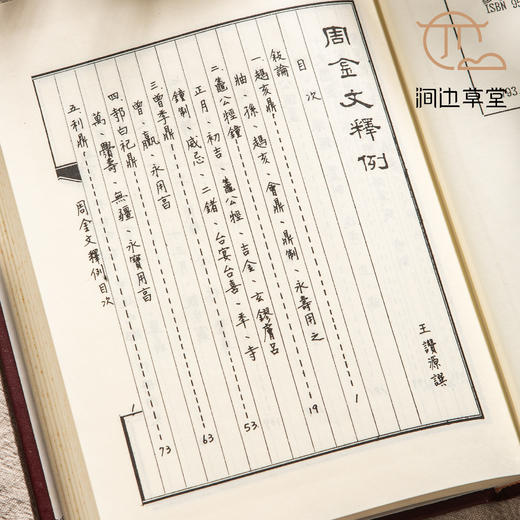 周金文釋例
王讚源譔
目次
敍論 1
一 趞亥鼎 19
䀇、孫、趞亥、會鼎、鼎制、永壽用之
二 鼄公牼鐘 53
正月、初吉、鼄公牼、吉金、玄鏐膚呂
鐘制、威忌、二鍺、台宴台喜、至、寺
三 曾季鼎 63
曾、嬴、永用亯
四 郭白祀鼎 73
萬、釁壽、無疆、永寶用亯
五 利鼎
周金文釋例目次
1
澗边草堂
ISBN 95
93.